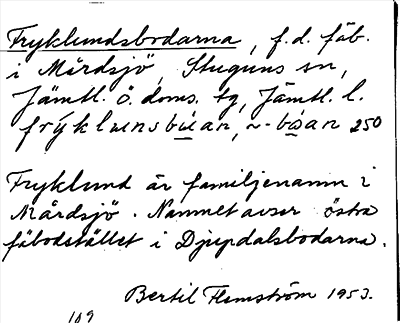 Fryklundsbodarna, f.d. fäb.
i Mårdsjö, Stuguns sn,
Jämtl. ö. doms. tg, Jämtl. l.
frýklunsbu̱an, ~-bo̱an 250
Fryklund är familjenamn i
Mårdsjö. Namnet avser östra
fäbodstället i Djupdalsbodarna.
Bertil Flemström 1953.
109